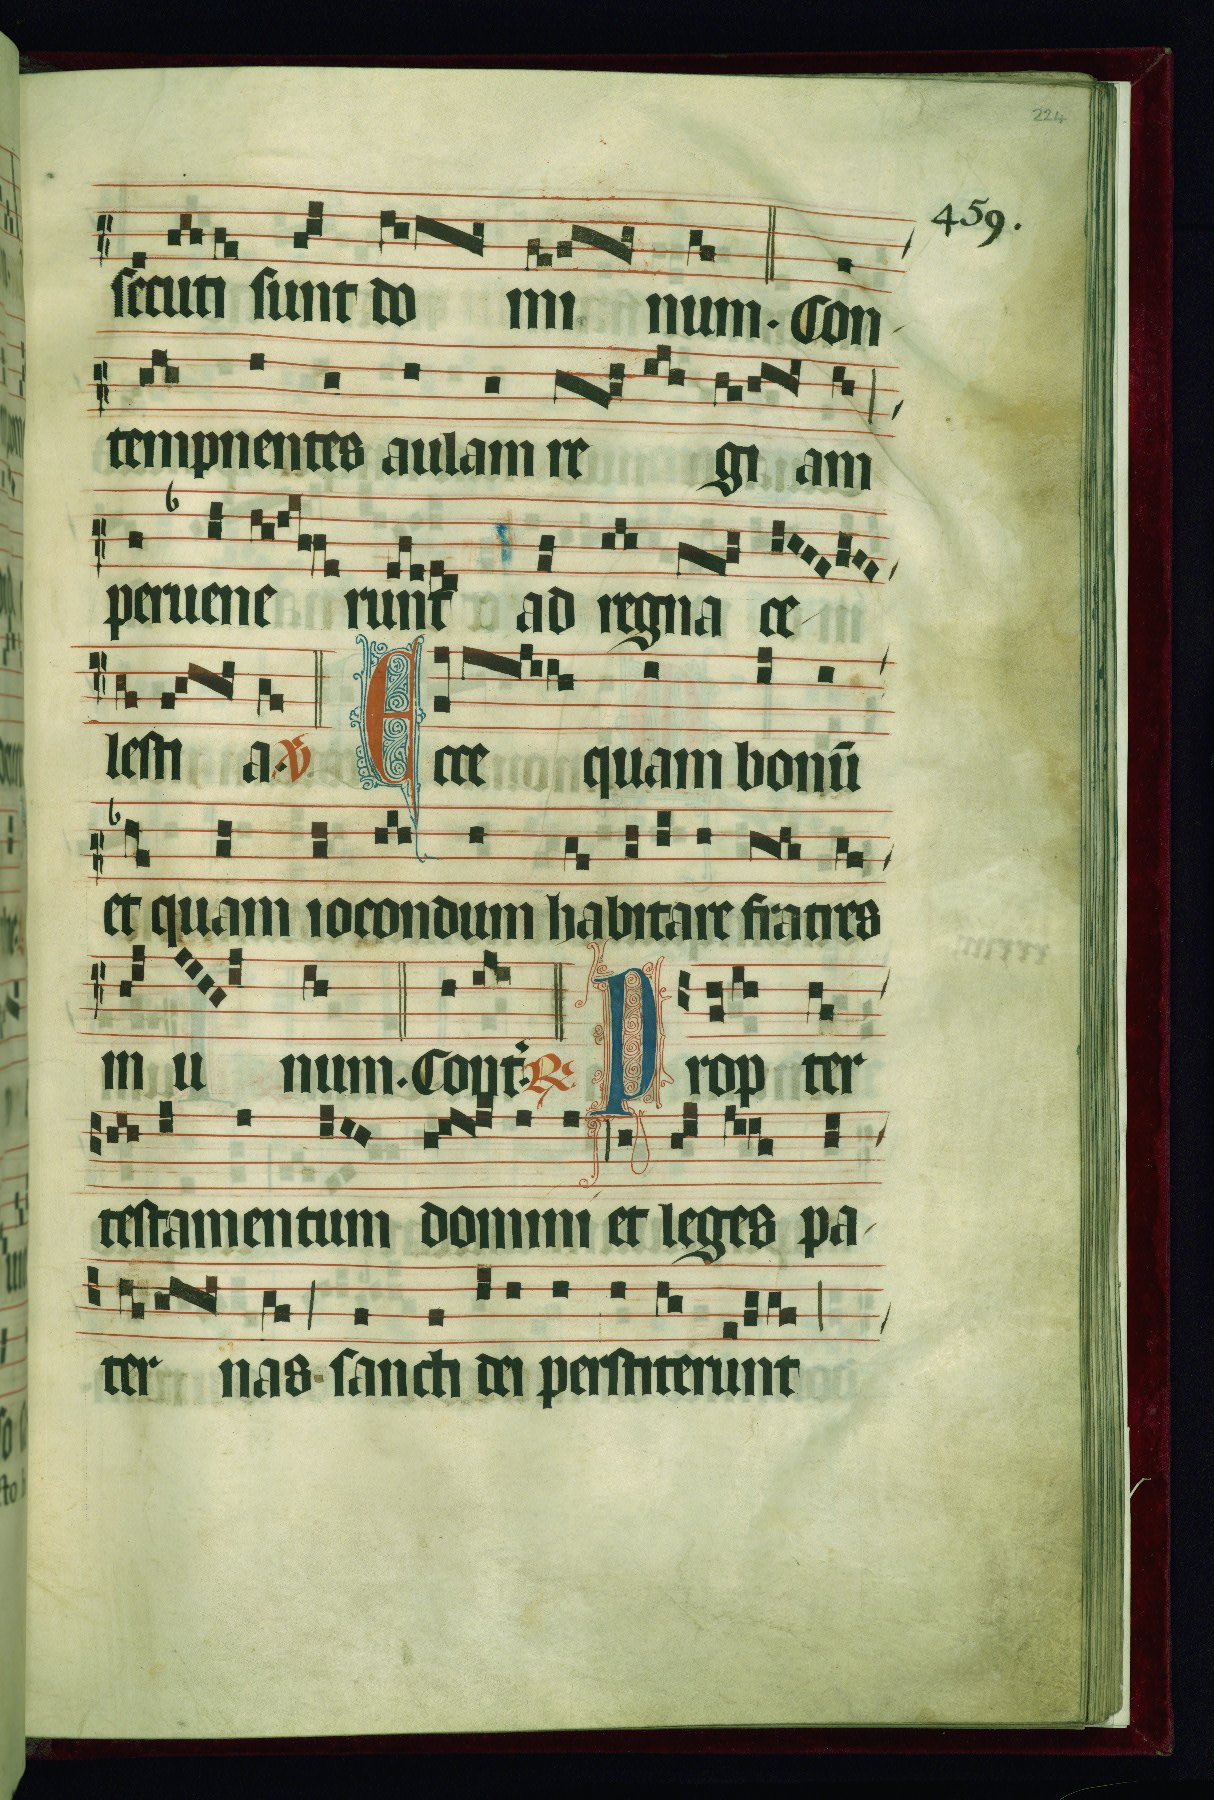 224
459.
secuti sunt do mi num. Con
tempnentes aulam re gi am
peruene runt ad regna ce
lesti a. V Ecce quam bonū
et quam iocondum habitare fratres
in u num. Cont. R Prop ter
testamentum domini et leges pa
ter nas. sancti dei perstiterunt